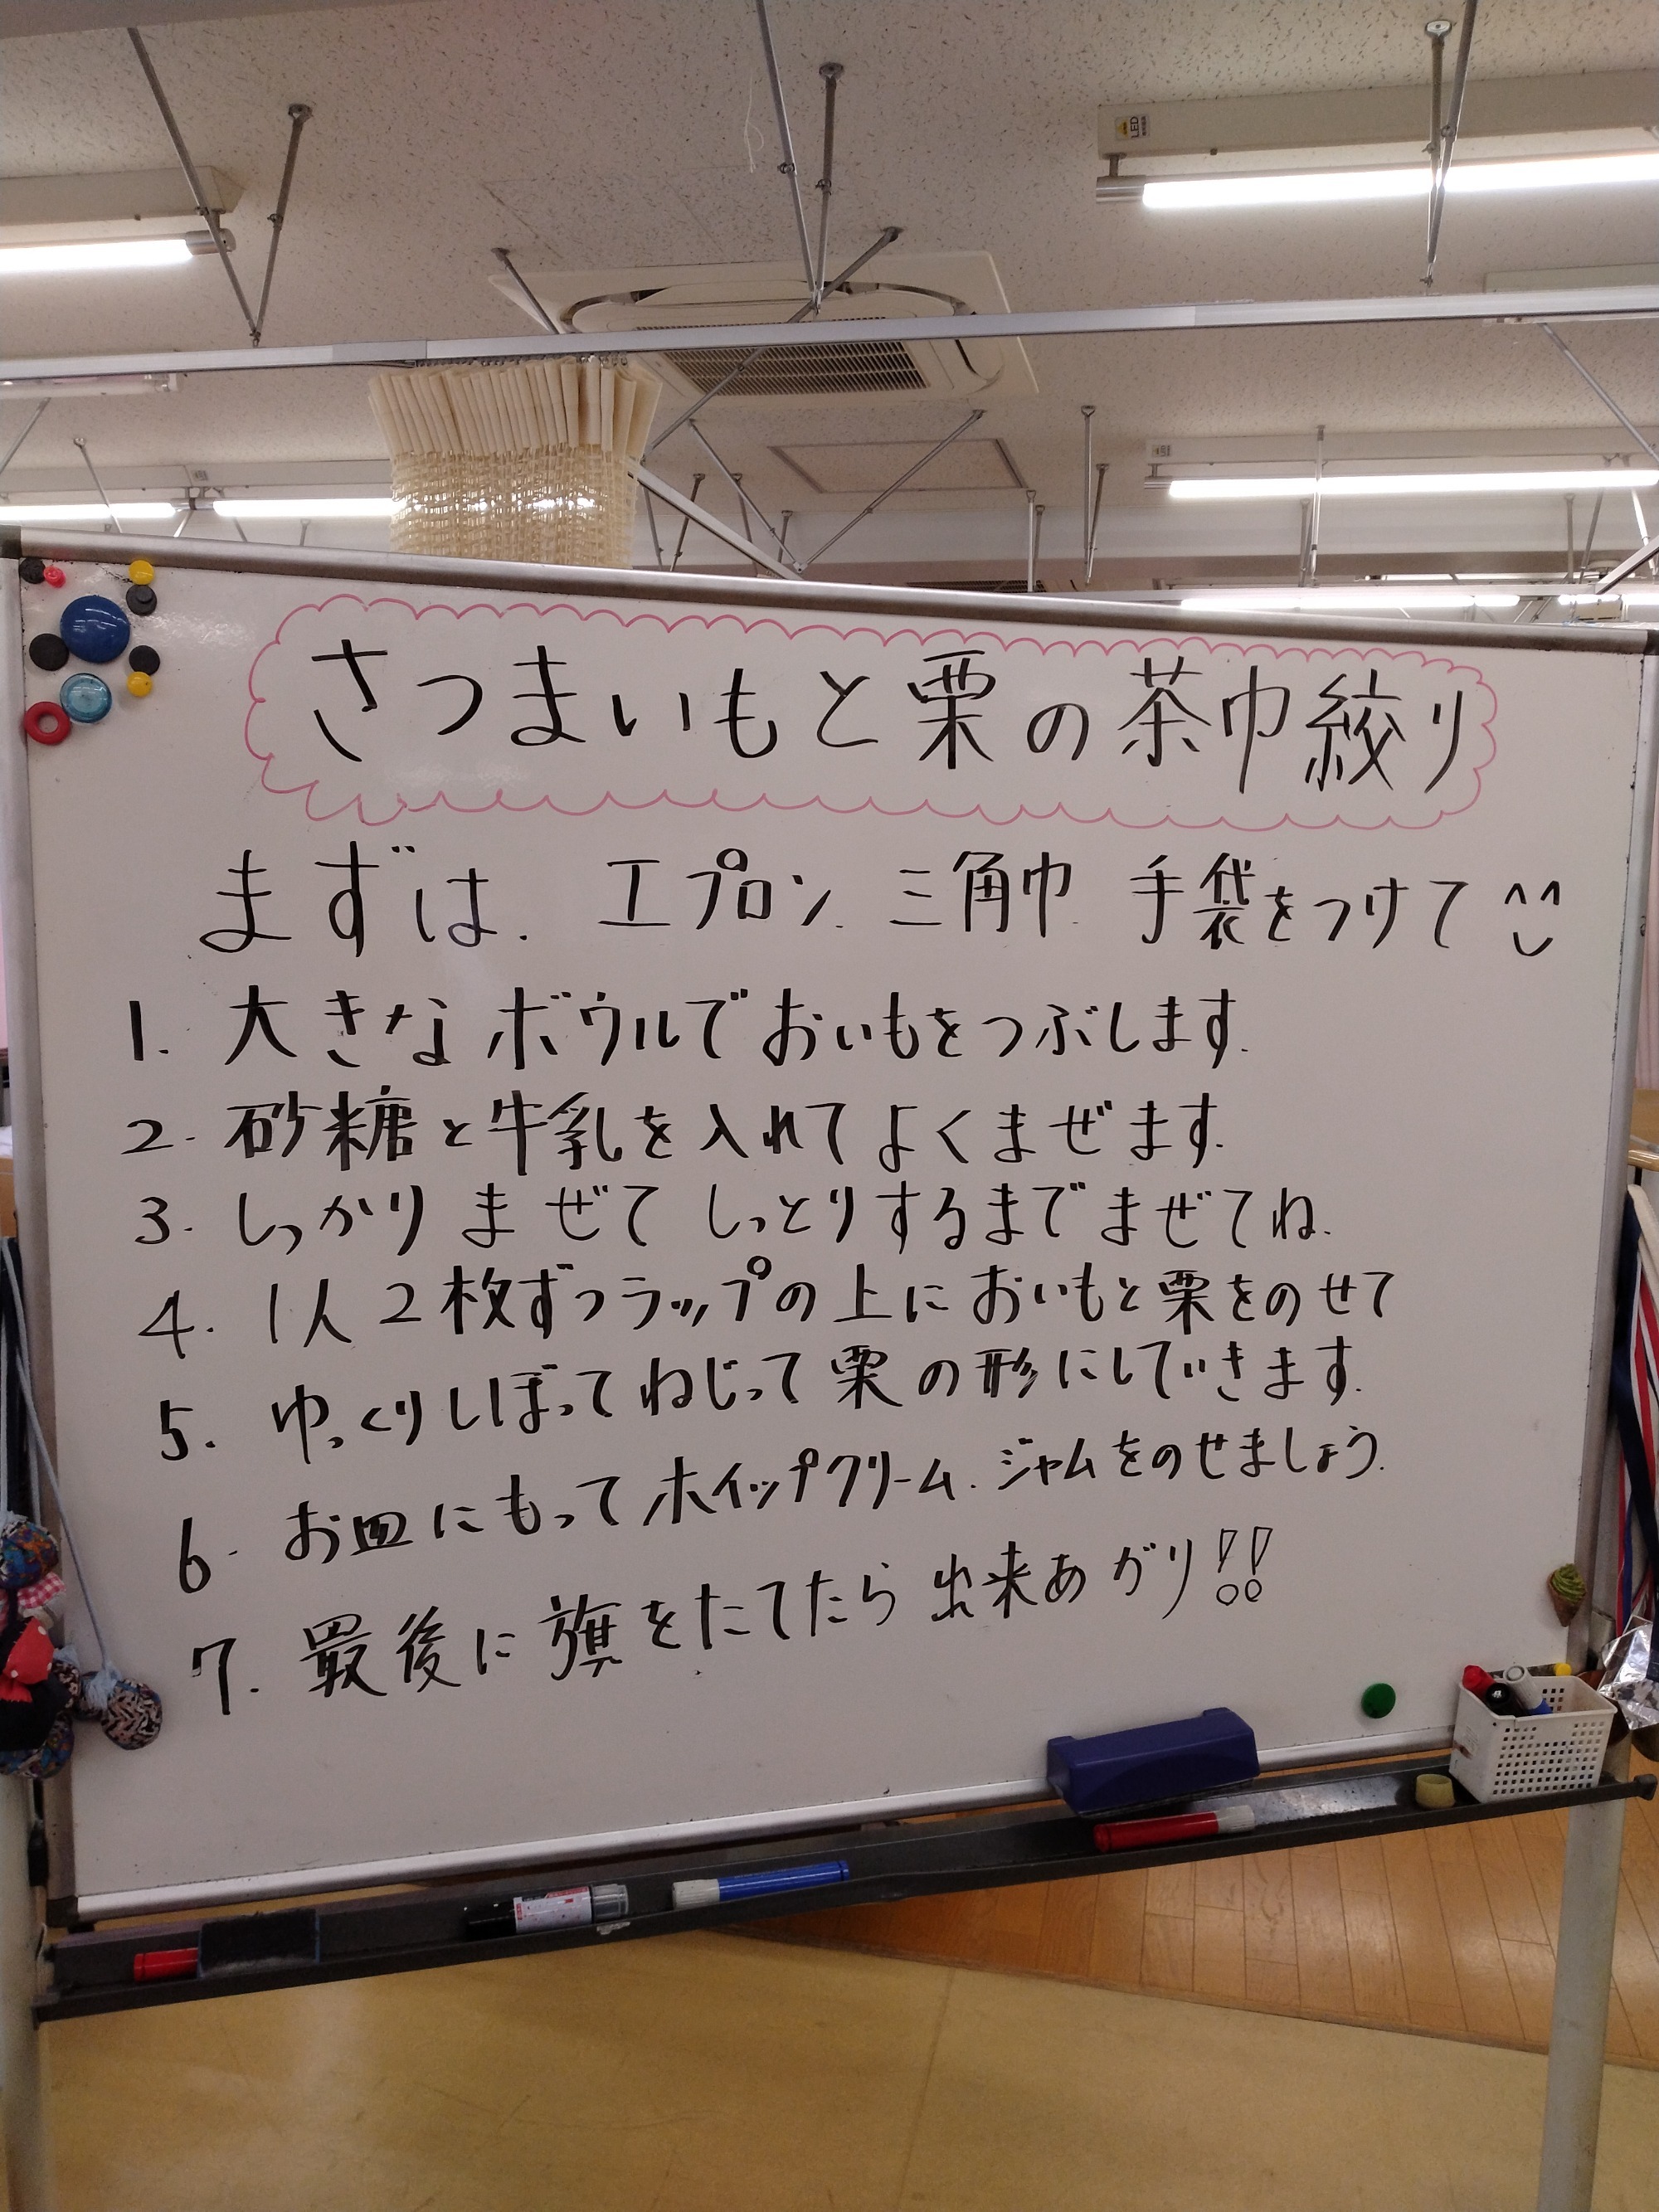 LED
さつまいもと栗の茶巾絞り
まずは. エプロン. 三角巾. 手袋をつけて ^^
1. 大きなボウルでおいもをつぶします.
2. 砂糖と牛乳を入れてよくまぜます.
3. しっかりまぜてしっとりするまでまぜてね.
4. 1人2枚ずつラップの上においもと栗をのせて
5. ゆっくりしぼってねじって栗の形にしていきます.
6. お皿にもってホイップクリーム.ジャムをのせましょう.
7. 最後に旗をたてたら出来あがり!!